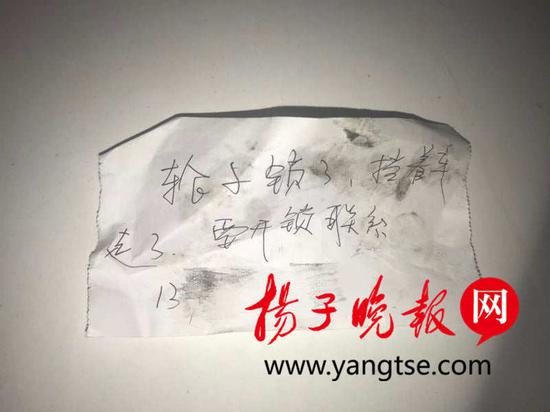 轮子锁了,挡着车
走了.要开锁联系
13
扬子晚报网
www.yangtse.com